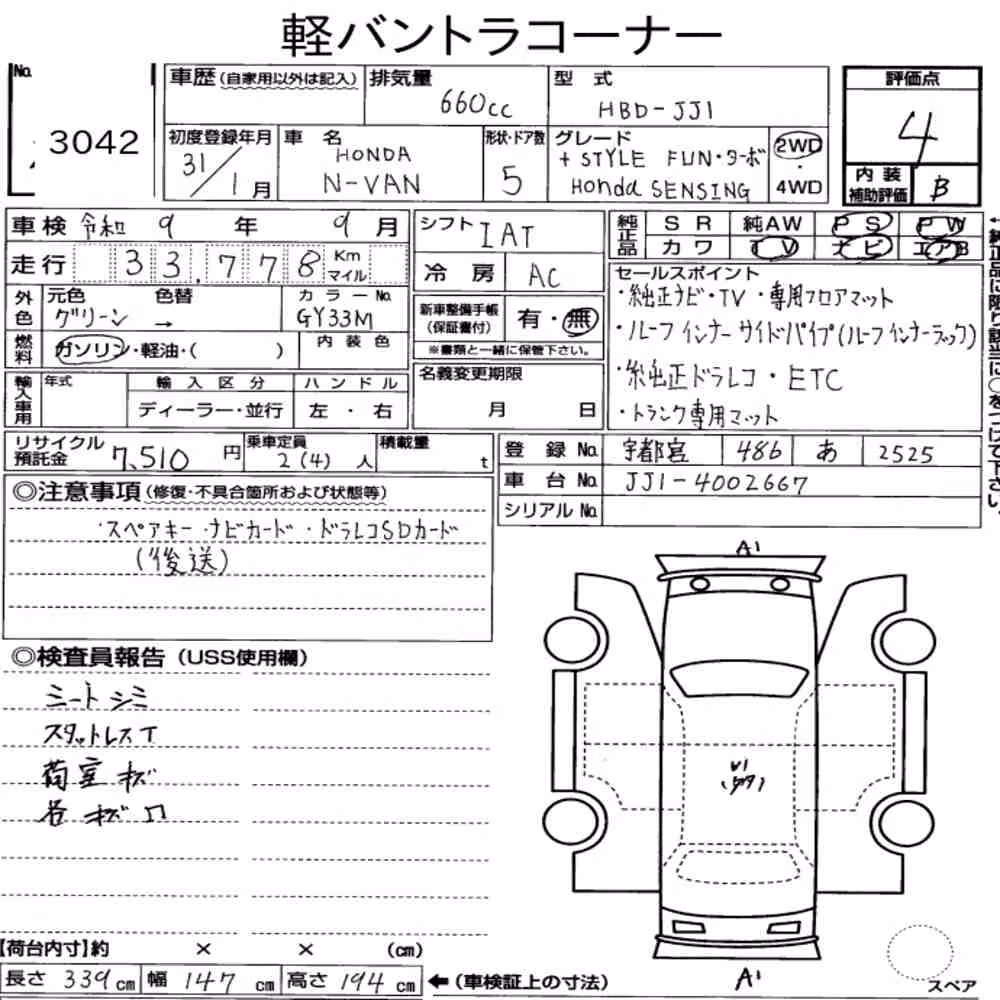 軽バントラコーナー
No.
3042
車歴(自家用以外は記入)
排気量
660cc
型式
HBD-JJ1
評価点
4
初度登録年月
31/1月
車名
HONDA
N-VAN
形状・ドア数
5
グレード
+STYLE FUN・ターボ
Honda SENSING
2WD
・
4WD
内装
補助評価
B
車検 令和 9年 9月
シフト
IAT
純正品
SR 純AW PS PW
カワ TV ナビ エアB
走行 33,778 Km
マイル
冷房 AC
セールスポイント
・純正ナビ・TV ・専用フロアマット
・ルーフインナーサイドパイプ(ルーフインナーラック)
・純正ドラレコ・ETC
・トランク専用マット
外色
元色 色替
グリーン →
カラーNo.
GY33M
新車整備手帳
(保証書付)
有・無
※書類と一緒に保管下さい。
燃料
ガソリン・軽油・( )
内装色
名義変更期限
月 日
輸入車用
年式
輸入区分
ディーラー・並行
ハンドル
左・右
リサイクル
預託金
7,510円
乗車定員
2(4)人
積載量
t
登録No. 宇都宮 486 あ 2525
車台No. JJ1-4002667
シリアルNo.
◎注意事項(修復・不具合箇所および状態等)
・スペアキー・ナビカード・ドラレコSDカード
(後送)
◎検査員報告(USS使用欄)
シートシミ
スタットレスT
荷室キズ
A1
A1
【荷台内寸】約 × × (cm)
長さ 339cm 幅 147cm 高さ 194cm ←(車検証上の寸法)
スペア